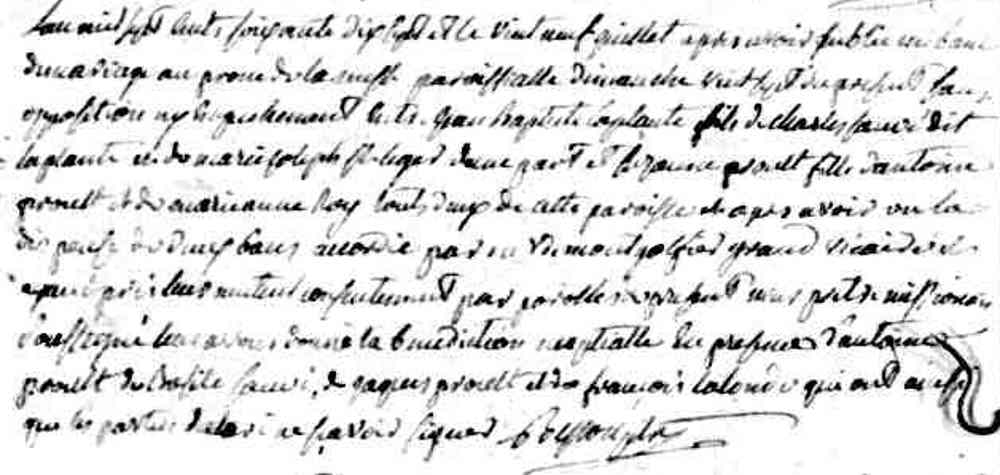 Lan mil sept cents soixante dix sept et le vint neuf juillet apres avoir publié un banc
de mariage au prone de la messe paroissialle dimanche vint sept du present sans
opposition ny empechement entre jean baptiste laplante fils de charles sauvé dit
laplante et de marie joseph st leger dune part et suzanne proult fille dantoine
proult et de marieanne Roy touts deux de cette paroisse et apres avoir vu la
dispense de deux bans accordée par mr De montgolfier grand vicaire et
apres pris leur mutuel consentement par parolles de present nous pretre missionaire
soussigné leur avons donné la benediction nuptialle en presence dantoine
proult de Basile sauvé, de jaques proult et de françois lalonde qui ont aussi
que les parties declaré ne savoir signer